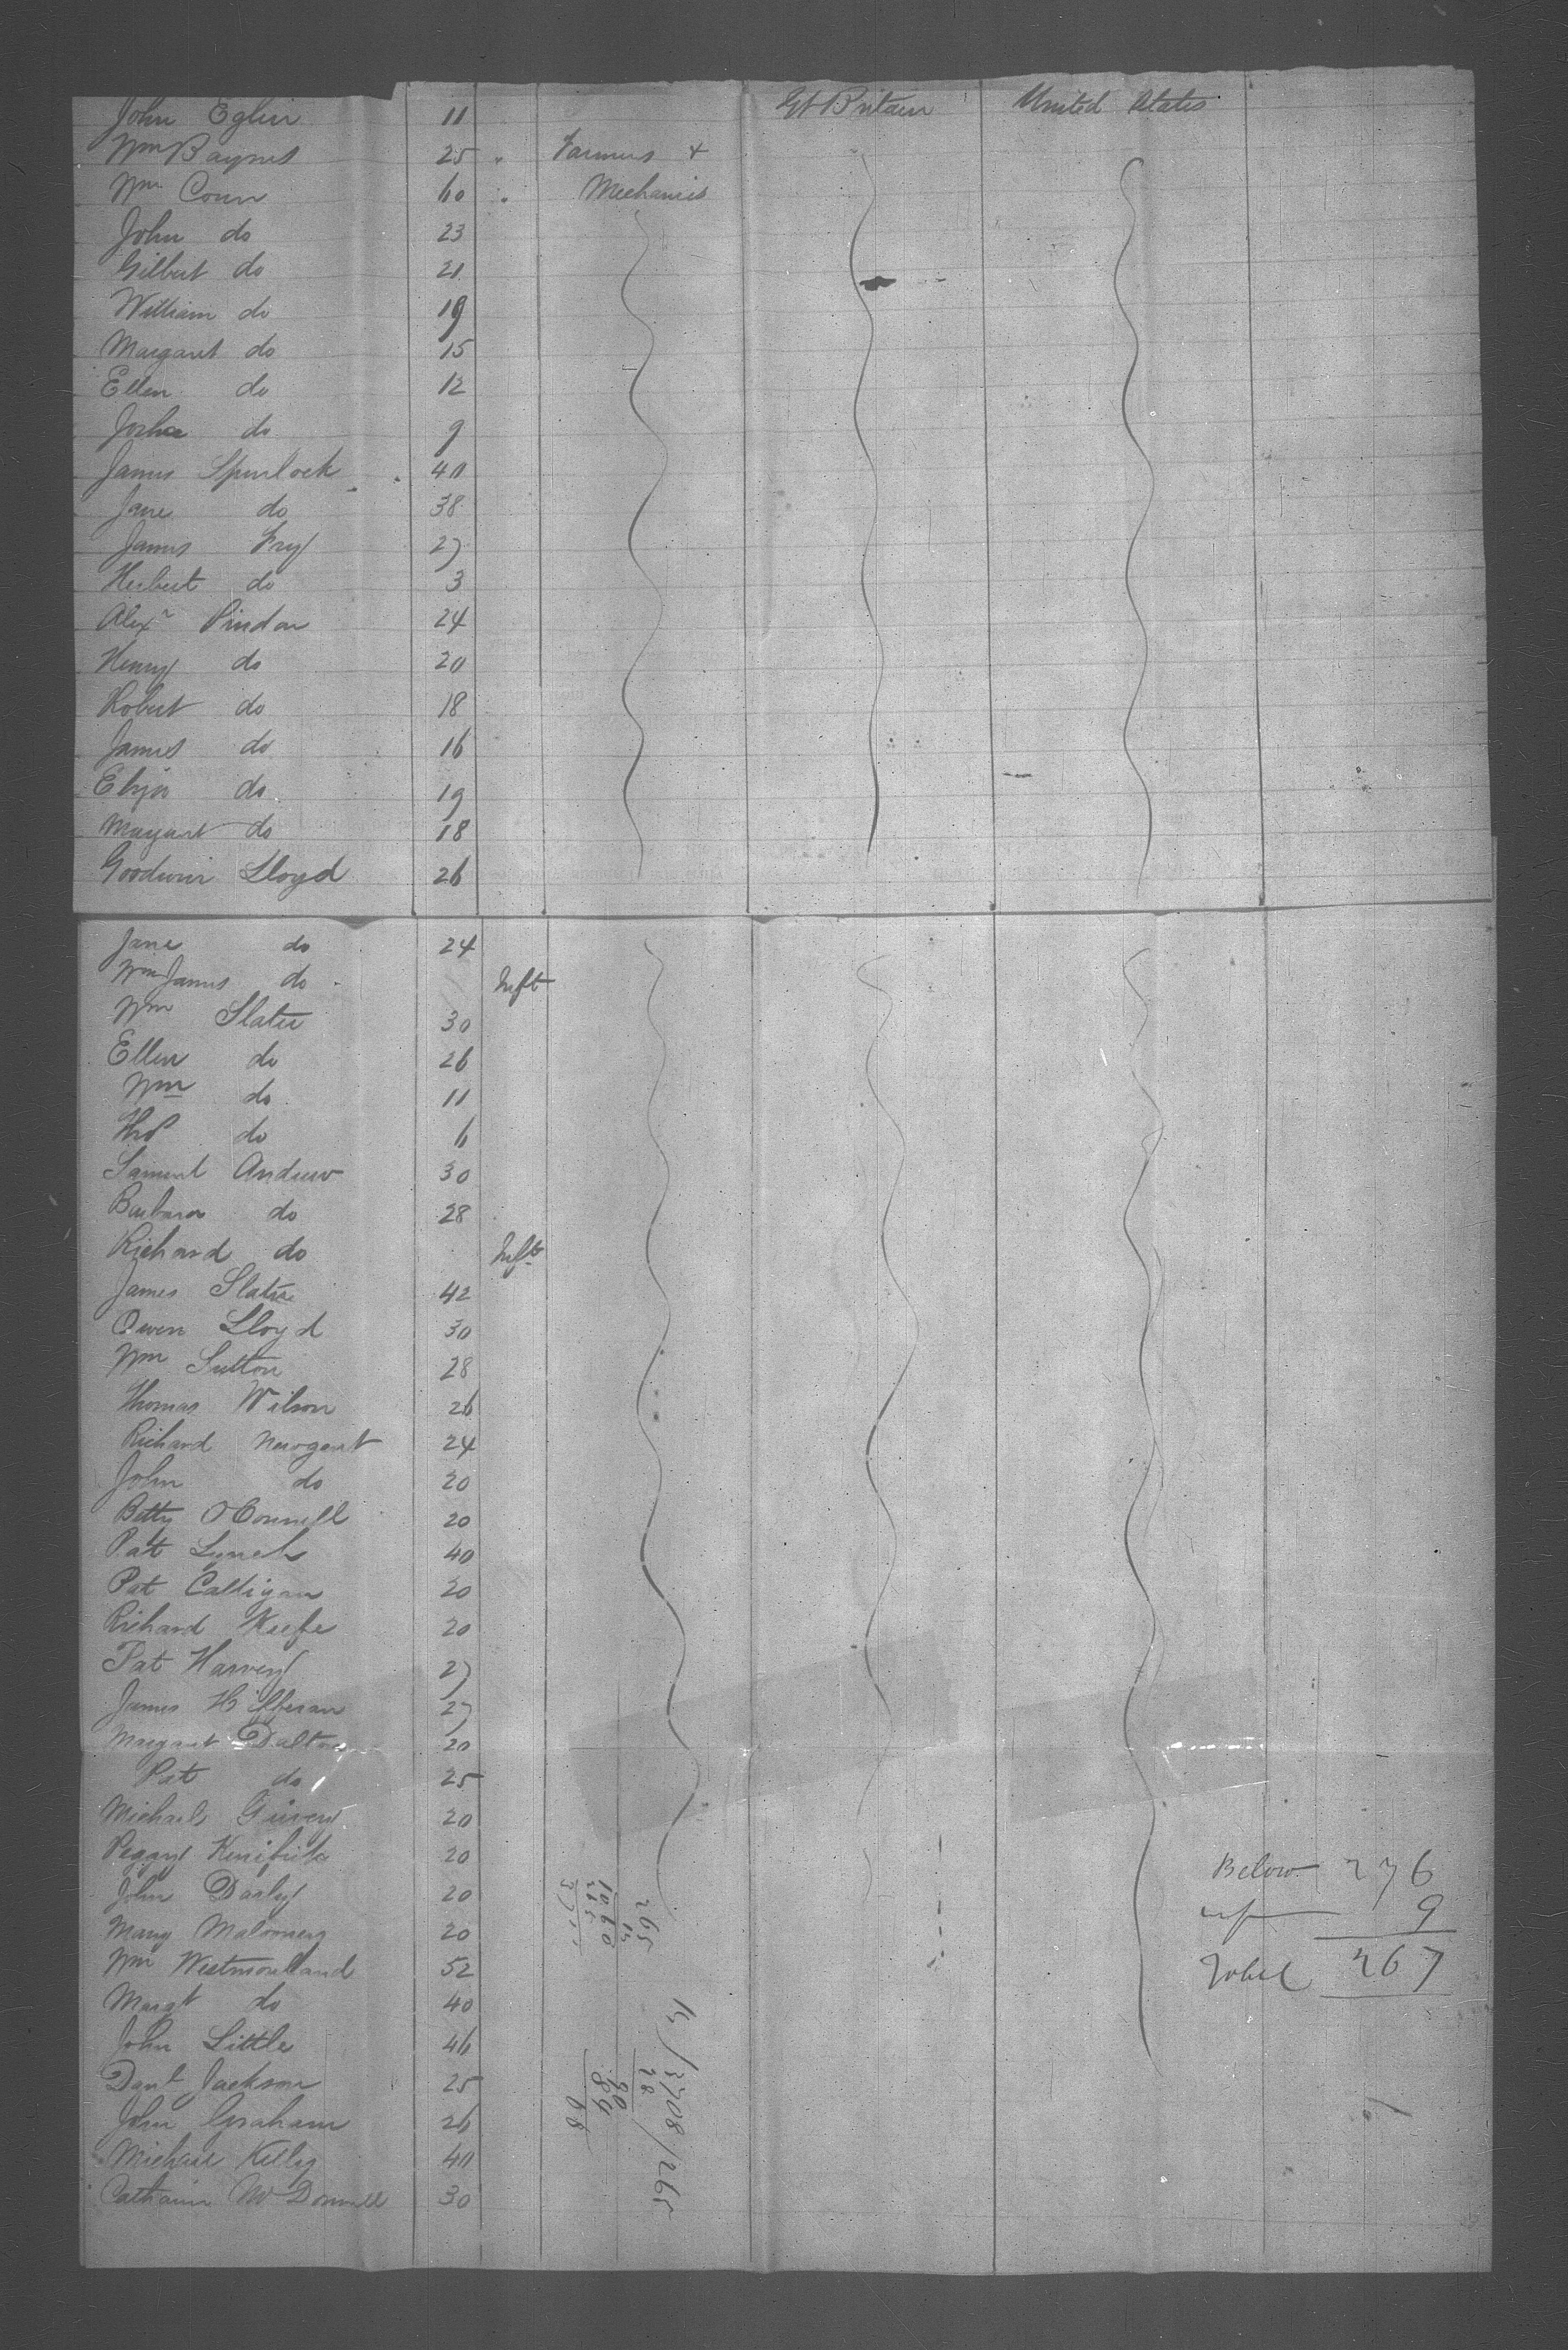 John Eglin 11 Gt Britain United States
Wm Baynes 25 " Farmers +
Wm Coun 60 " Mechanics
John do 23
Gilbert do 21
William do 19
Margaret do 15
Ellen do 12
do 9
James Spurlock 40
Jane do 38
James Fry 27
Herbert do 3
Alexr Pindar 24
Henry do 20
Robert do 18
James do 16
Eliza do 19
Margaret do 18
Goodwin Lloyd 26
Jane do 24
Wm James do Inft
Wm Slater 30
Ellen do 26
Wm do 11
Thos do 6
Samuel Andrew 30
Barbara do 28
Richard do Inft
James Slater 42
Owen Lloyd 30
Wm Sutton 28
Thomas Wilson 26
Richard Newgent 24
John do 20
Betty O'Connell 20
Pat Lynch 40
Pat Caltigan 20
Richard Keefe 20
Pat Harvey 27
James Hifferan 27
Margaret Dalton 20
Pat do 25
Michael 20
Peggy 20
John Darby 20
Mary Malooney 20
Wm Westmoreland 52
Margt do 40
John Little 46
Danl Jackson 25
John Graham 26
Michael Kelly 40
Catharin McDonnell 30
Below 276
up 9
Total 267
265
14
1060
265
14)3708(265
28
90
84
68